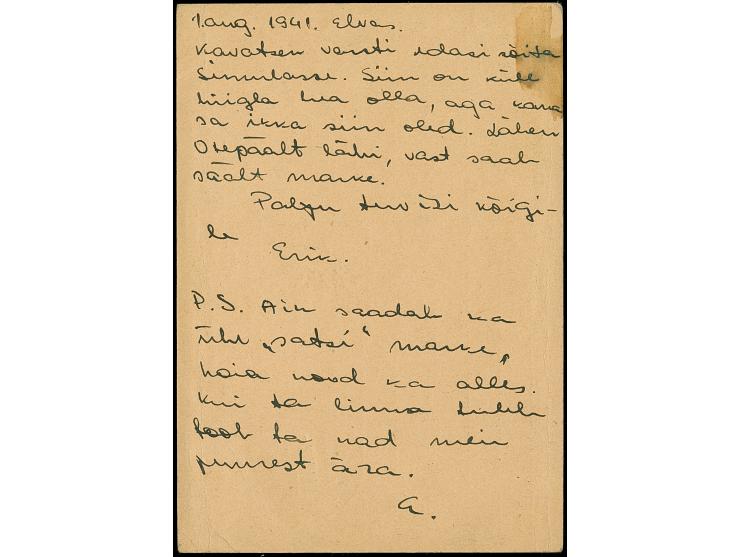 1. aug. 1941. Elvas.
Kavatsen varsti edasi sõita
Sinnulasse. Siin on küll
hiigla hea olla, aga kaua
sa ikka siin oled. Lähen
Otepäält läbi, vast saab
säält marke.
Palju tervisi kõigi-
le
Erik.
P.S. Ain saadab ka
ühe „satsi" marke,
hoia need ka alles.
Kui ta linna tuleb
toob ta nad meie
juurest ära.